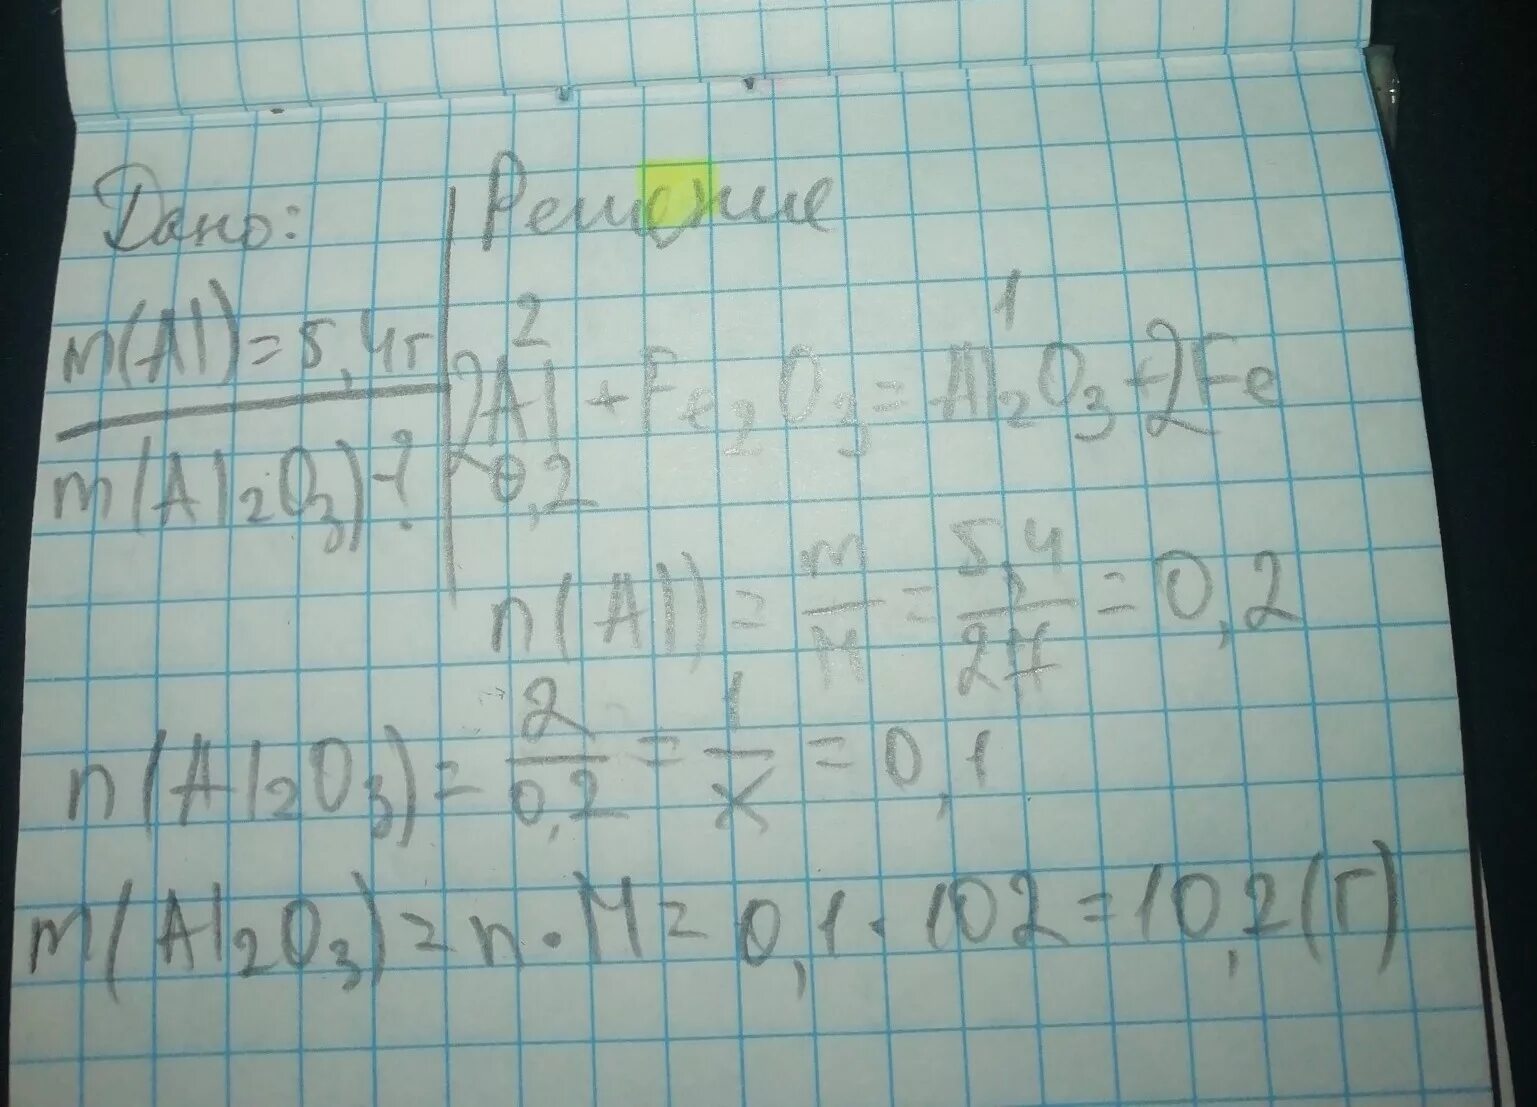 Дано:
m(Al)=5,4г
m(Al2O3)-?
Решение
2 1
2Al+Fe2O3=Al2O3+2Fe
0,2
n(Al)=m/M=5,4/27=0,2
n(Al2O3)=2/0,2=1/x=0,1
m(Al2O3)=n·M=0,1·102=10,2(г)